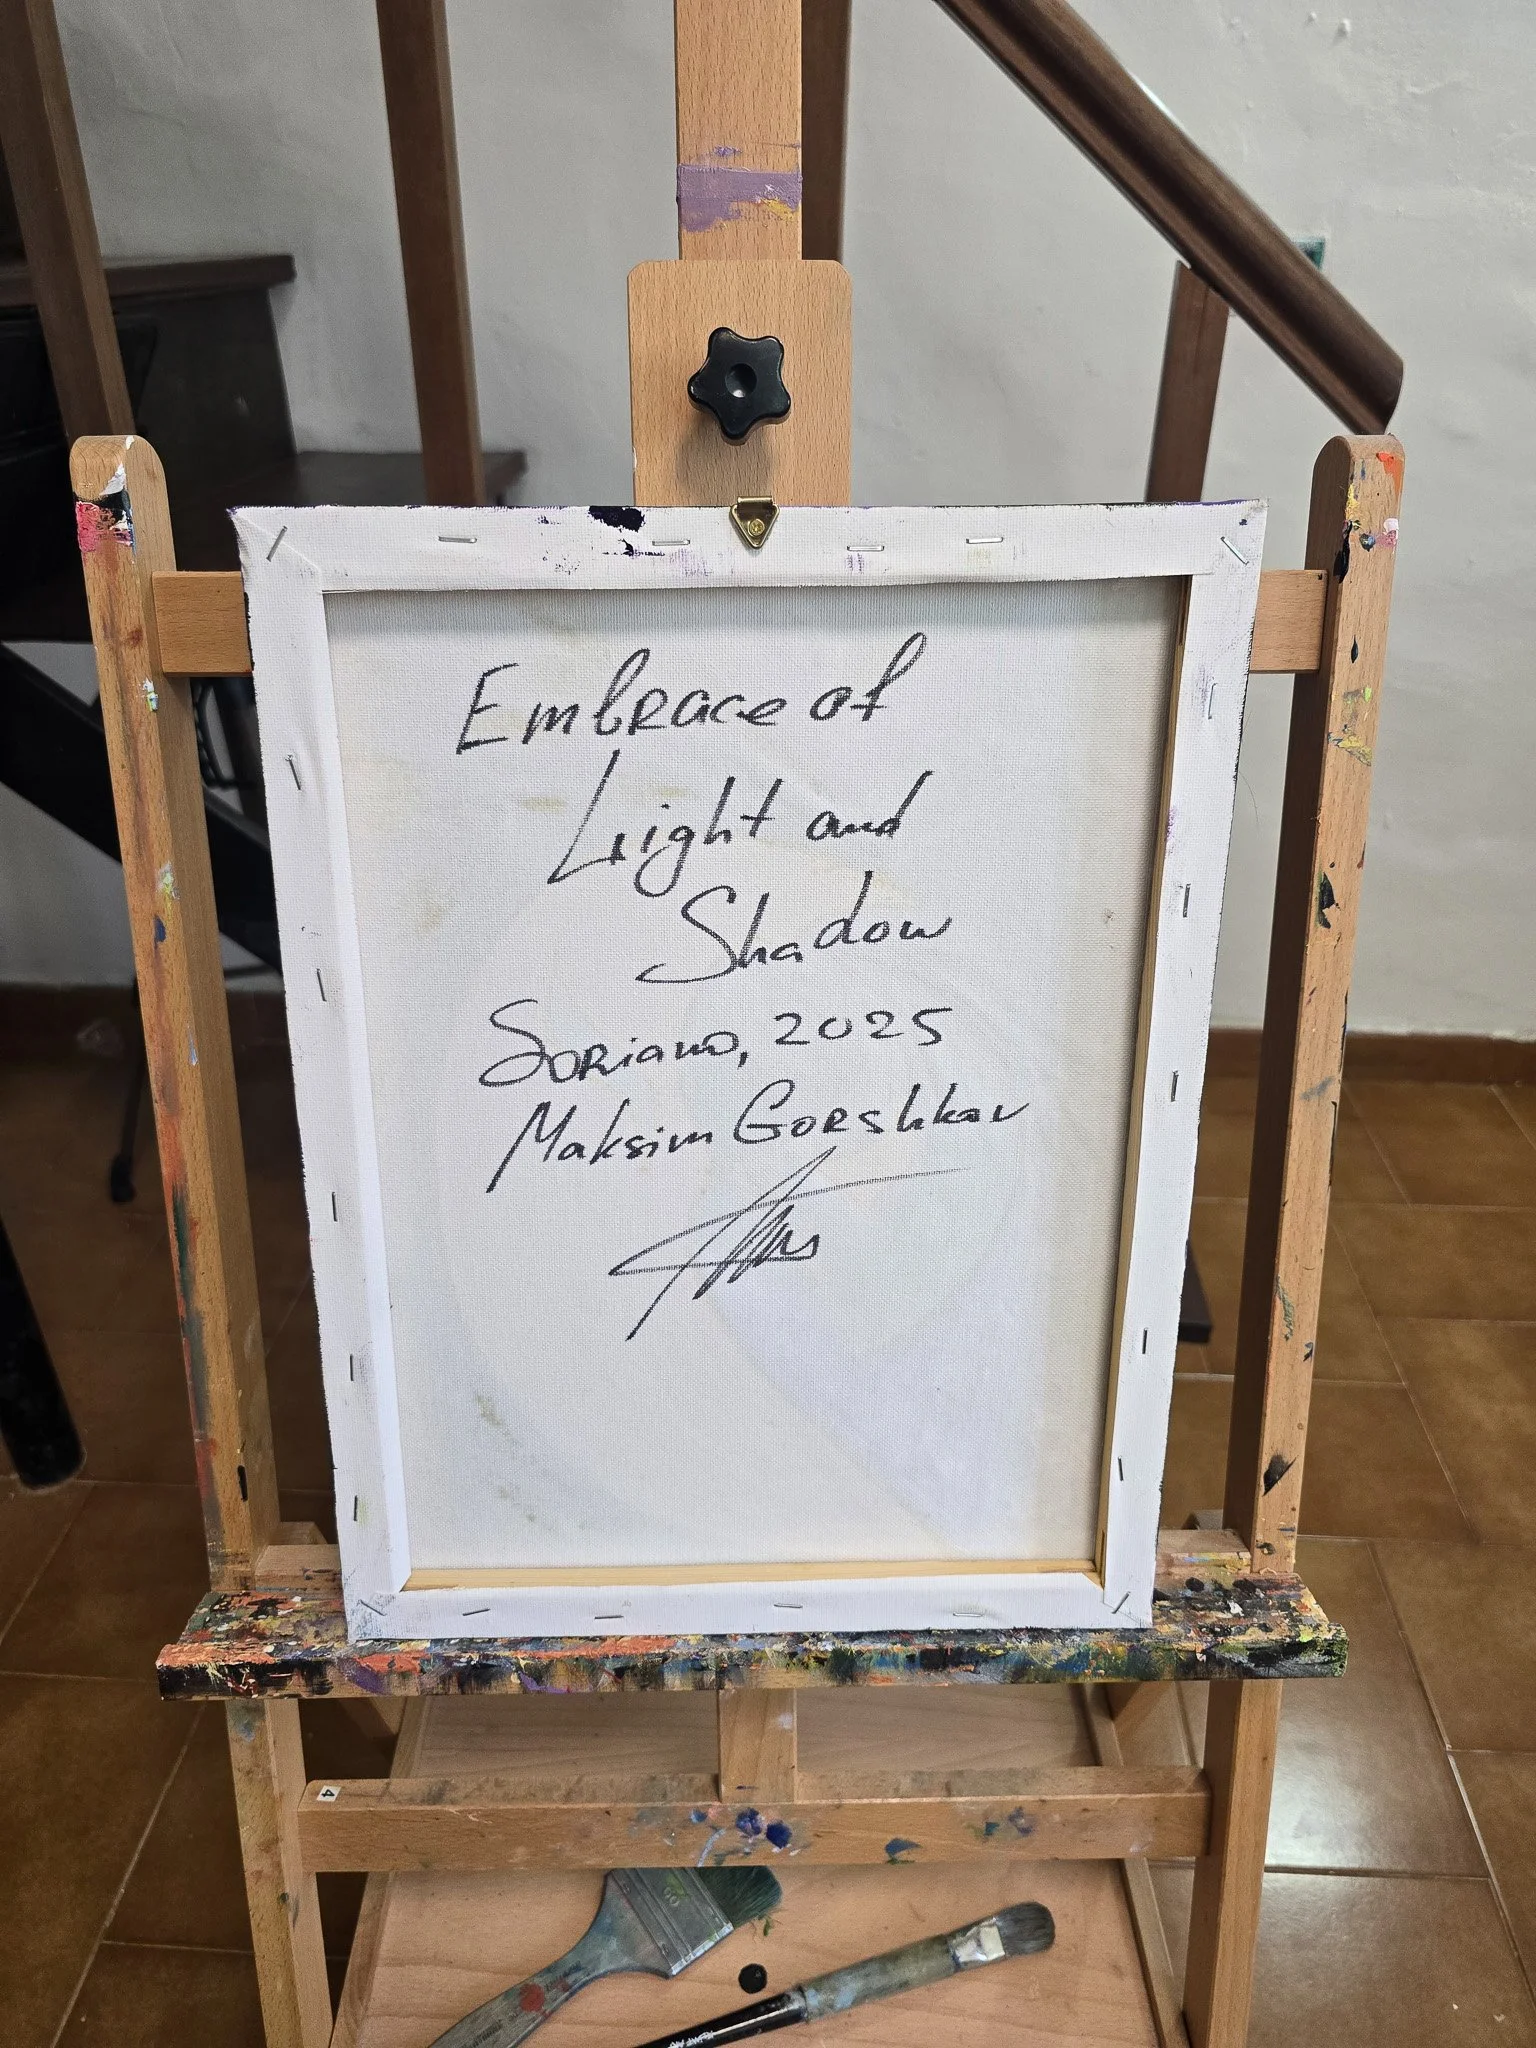 Embrace of
Light and
Shadow
Soriano, 2025
Maksim Gorshkov
4
60